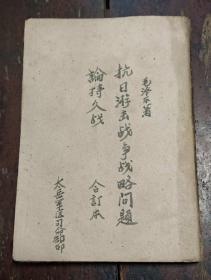 毛泽东著
抗日游击战争战略问题
論持久战 合訂本
太岳军区司令部印